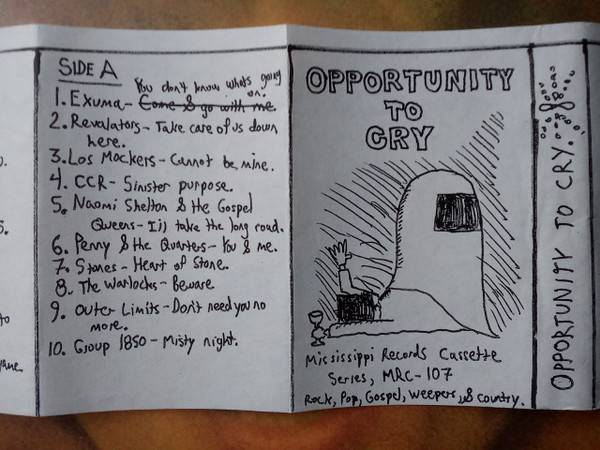 SIDE A
You don't know whats going
on.
1. Exuma - Come & go with me.
2. Revalators - Take care of us down
here.
3. Los Mockers - Cannot be mine.
4. CCR - Sinister purpose.
5. Naomi Shelton & the Gospel
Queens - I'll take the long road.
6. Penny & the Quarters - You & me.
7. Stones - Heart of Stone.
8. The Warlocks - Beware
9. Outer Limits - Don't need you no
more.
10. Group 1850 - Misty night.
OPPORTUNITY
TO
CRY
Mississippi Records Cassette
Series, MRC-107
Rock, Pop, Gospel, Weepers, & Country.
OPPORTUNITY TO CRY.
5.
to